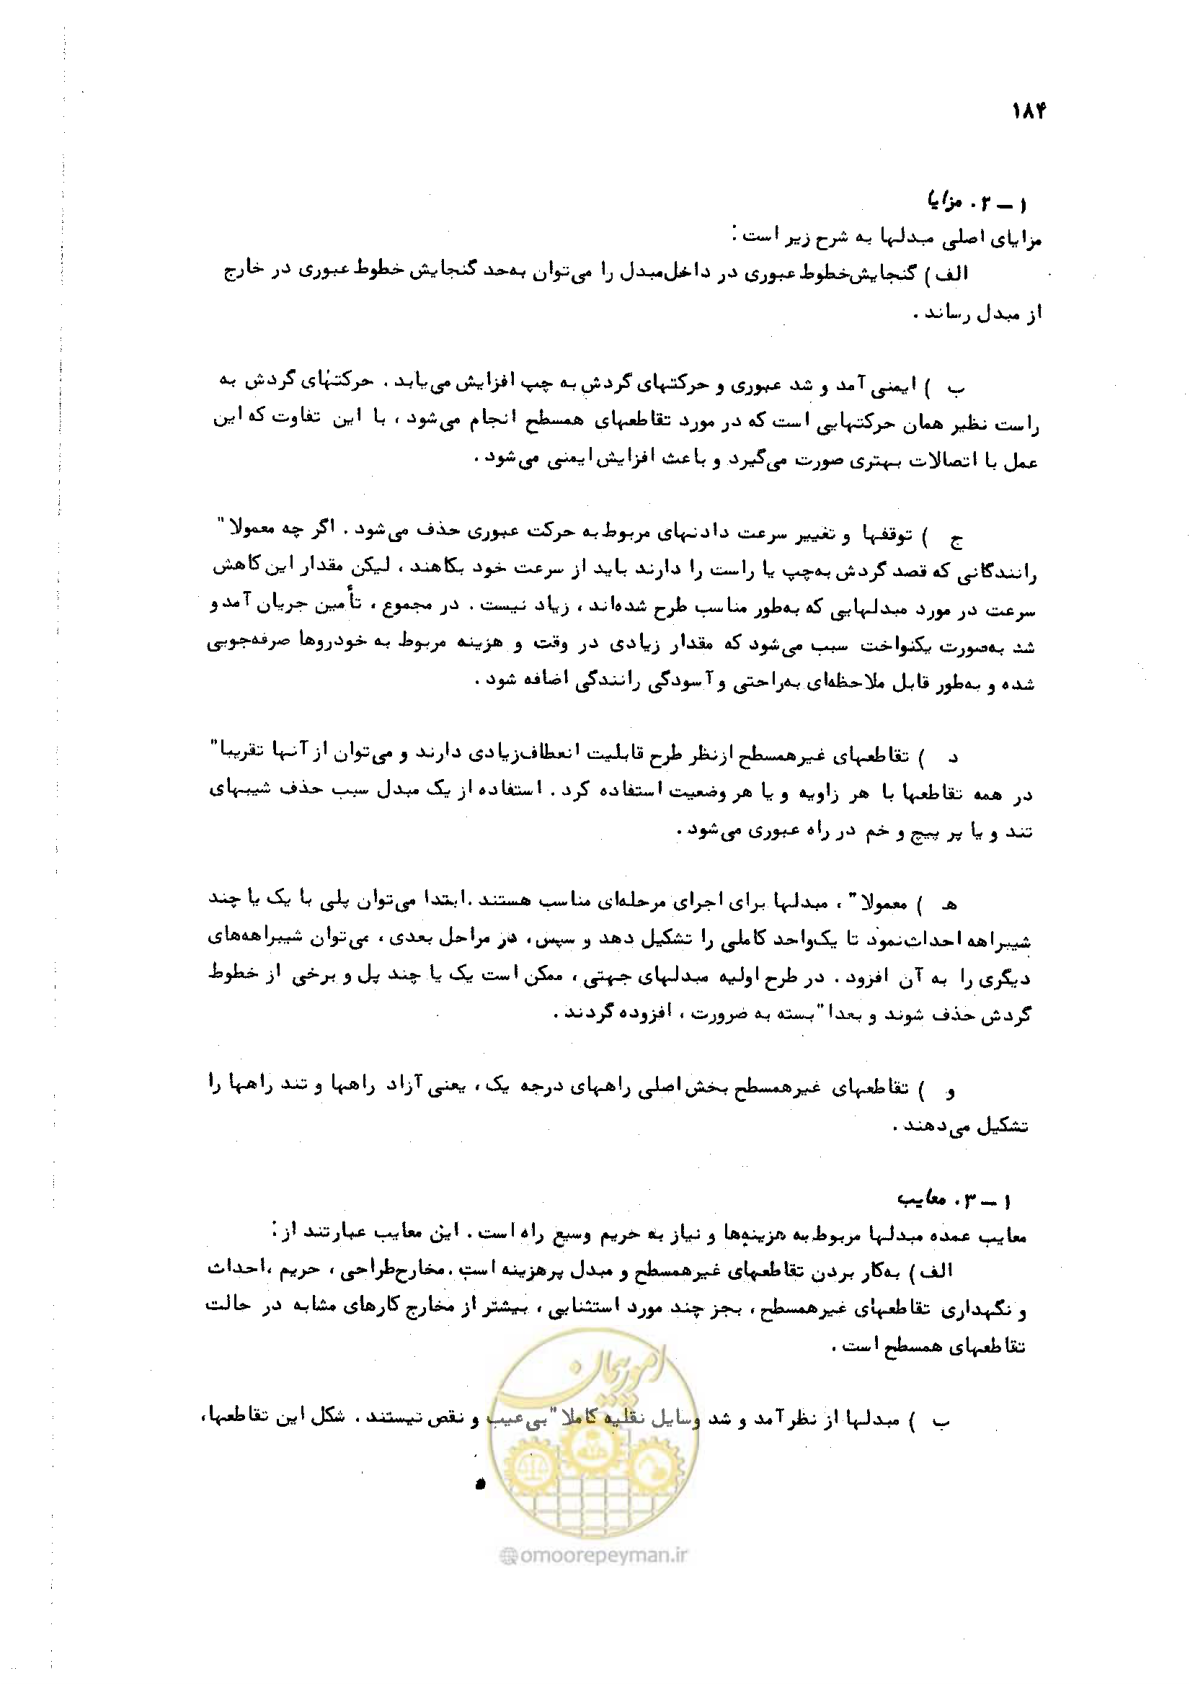 ۱۸۴
۱ – ۲. مزایا
مزایای اصلی مبدلها به شرح زیر است:
الف) گنجایش خطوط عبوری در داخل مبدل را می‌توان به‌حد گنجایش خطوط عبوری در خارج
از مبدل رساند.
ب ) ایمنی آمد و شد عبوری و حرکتهای گردش به چپ افزایش می‌یابد. حرکتهای گردش به
راست نظیر همان حرکتهایی است که در مورد تقاطعهای همسطح انجام می‌شود، با این تفاوت که این
عمل با اتصالات بهتری صورت می‌گیرد و باعث افزایش ایمنی می‌شود.
ج ) توقفها و تغییر سرعت دادنهای مربوط به حرکت عبوری حذف می‌شود. اگر چه معمولا"
رانندگانی که قصد گردش به‌چپ یا راست را دارند باید از سرعت خود بکاهند، لیکن مقدار این کاهش
سرعت در مورد مبدلهایی که به‌طور مناسب طرح شده‌اند، زیاد نیست. در مجموع، تأمین جریان آمد و
شد به‌صورت یکنواخت سبب می‌شود که مقدار زیادی در وقت و هزینه مربوط به خودروها صرفه‌جویی
شده و به‌طور قابل ملاحظه‌ای به‌راحتی و آسودگی رانندگی اضافه شود.
د ) تقاطعهای غیرهمسطح از نظر طرح قابلیت انعطاف زیادی دارند و می‌توان از آنها تقریبا"
در همه تقاطعها با هر زاویه و یا هر وضعیت استفاده کرد. استفاده از یک مبدل سبب حذف شیبهای
تند و یا پر پیچ و خم در راه عبوری می‌شود.
هـ ) معمولا"، مبدلها برای اجرای مرحله‌ای مناسب هستند. ابتدا می‌توان پلی با یک یا چند
شیبراهه احداث نمود تا یک‌واحد کاملی را تشکیل دهد و سپس، در مراحل بعدی، می‌توان شیبراهه‌های
دیگری را به آن افزود. در طرح اولیه مبدلهای جهتی، ممکن است یک یا چند پل و برخی از خطوط
گردش حذف شوند و بعدا" بسته به ضرورت، افزوده گردند.
و ) تقاطعهای غیرهمسطح بخش اصلی راههای درجه یک، یعنی آزاد راهها و تند راهها را
تشکیل می‌دهند.
۱ – ۳. معایب
معایب عمده مبدلها مربوط به هزینه‌ها و نیاز به حریم وسیع راه است. این معایب عبارتند از:
الف) به‌کار بردن تقاطعهای غیرهمسطح و مبدل پرهزینه است. مخارج طراحی، حریم، احداث
و نگهداری تقاطعهای غیرهمسطح، بجز چند مورد استثنایی، بیشتر از مخارج کارهای مشابه در حالت
تقاطعهای همسطح است.
ب ) مبدلها از نظر آمد و شد وسایل نقلیه کاملا" بی‌عیب و نقص نیستند. شکل این تقاطعها،
امور پیمان
@omoorepeyman.ir